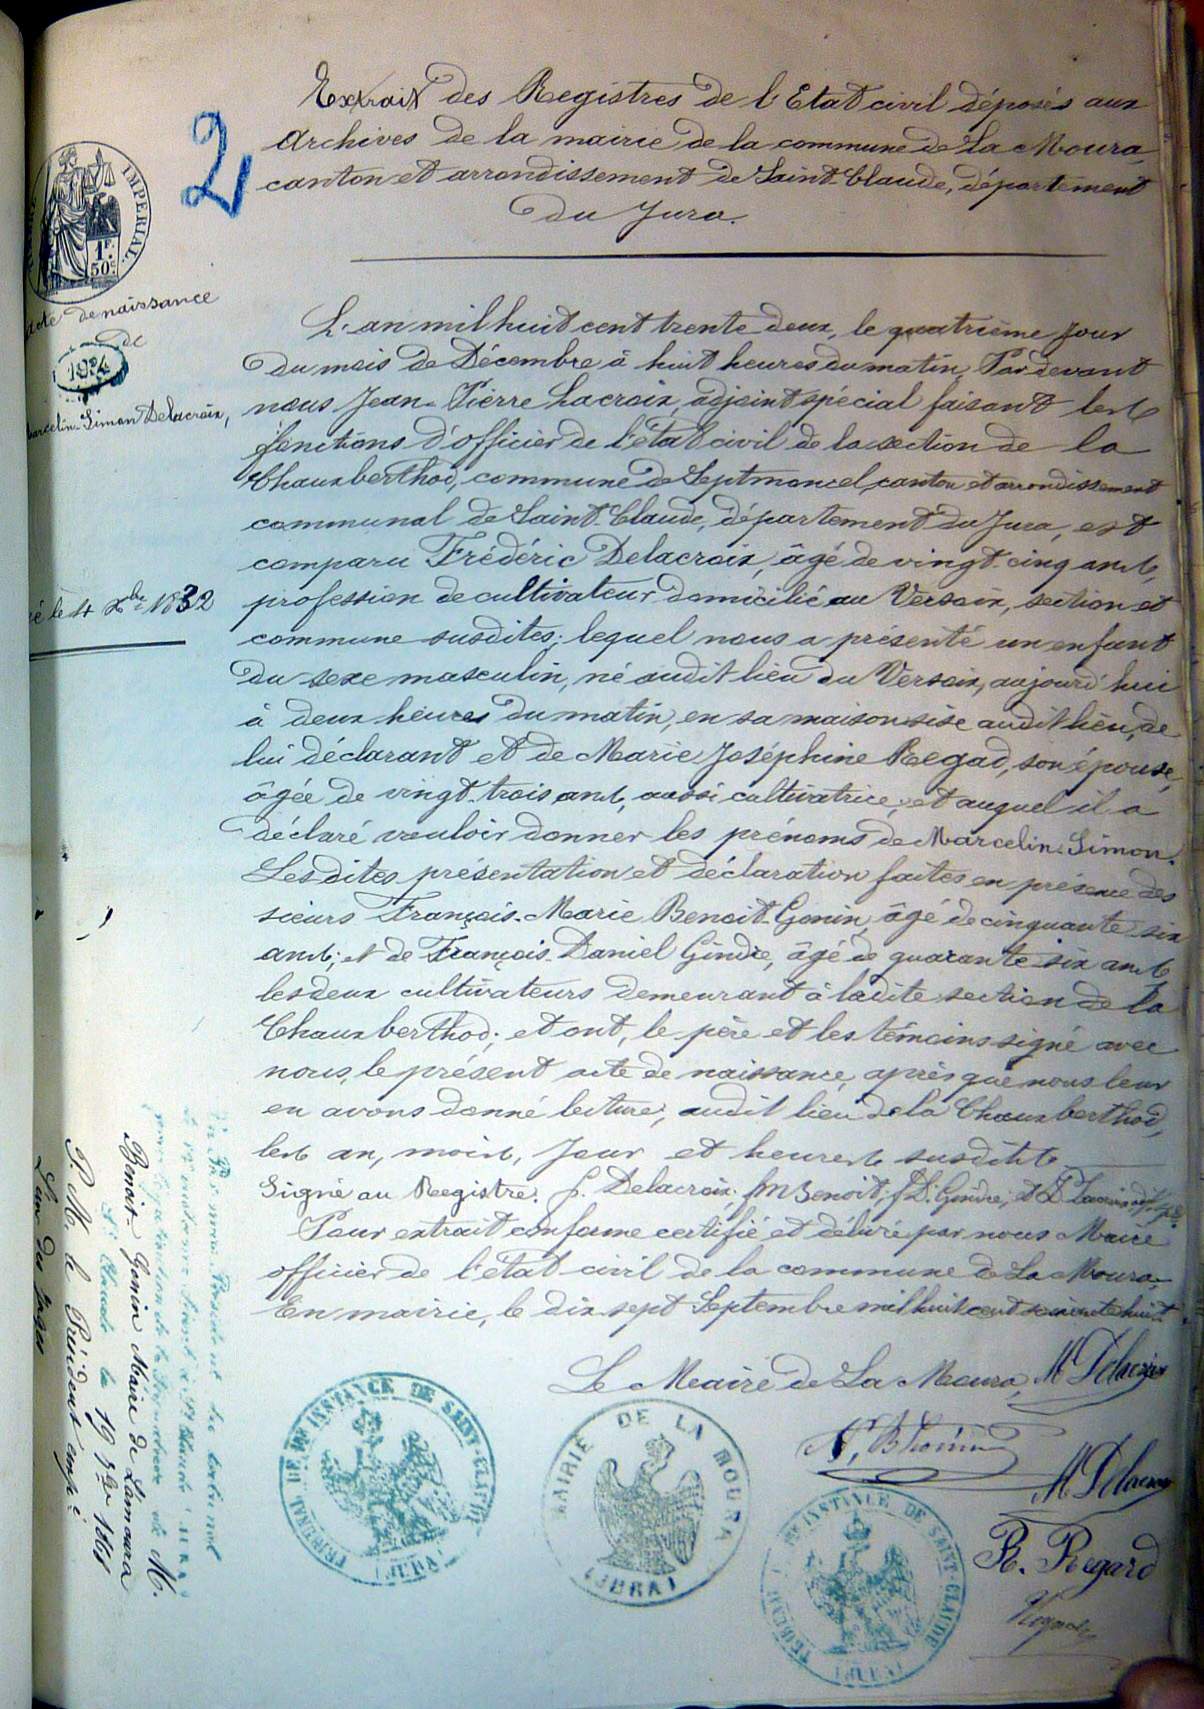 Extrait des Registres de l'Etat civil déposés aux
Archives de la mairie de la commune de La Moura,
canton et arrondissement de Saint-Claude, département
du Jura.
2
IMPERIAL.
1F.
50c
acte de naissance
de
1924
Marcelin-Simon Delacroix,
né le 4 Xbre 1832
L'an mil huit cent trente deux, le quatrième jour
du mois de Décembre à huit heures du matin, Par devant
nous Jean-Pierre Lacroix, adjoint spécial faisant les
fonctions d'officier de l'état civil de la section de la
Chauxberthod, commune de Septmoncel, canton et arrondissement
communal de Saint-Claude, département du Jura, est
comparu Frédéric Delacroix, âgé de vingt-cinq ans,
profession de cultivateur domicilié au Versoix, section et
commune susdites; lequel nous a présenté un enfant
du sexe masculin, né audit lieu du Versoix, aujourd'hui
à deux heures du matin, en sa maison sise audit lieu, de
lui déclarant et de Marie Joséphine Regad, son épouse,
âgée de vingt-trois ans, aussi cultivatrice, et auquel il a
déclaré vouloir donner les prénoms de Marcelin-Simon.
Lesdites présentation et déclaration faites en présence des
sieurs François-Marie Benoit-Gonin, âgé de cinquante-six
ans; et de François-Daniel Gindre, âgé de quarante-six ans,
les deux cultivateurs demeurant à ladite section de la
Chauxberthod; et ont, le père et les témoins signé avec
nous, le présent acte de naissance, après que nous leur
en avons donné lecture, audit lieu de la Chauxberthod,
les an, mois, jour et heures susdits
Signé au Registre: f. Delacroix, fM Benoit, f D. Gindre, et
Pour extrait conforme certifié et délivré par nous Maire
officier de l'état civil de la commune de La Moura,
En mairie, le dix sept Septembre mil huit cent soixante huit
Le Maire de La Moura, M Delacroix
M Delacroix
R. Regard
TRIBUNAL DE 1ERE INSTANCE DE SAINT-CLAUDE
(JURA)
MAIRIE DE LA MOURA
(JURA)
TRIBUNAL DE 1ERE INSTANCE DE SAINT-CLAUDE
(JURA)
la légalisation de la Signature de M.
Benoit-Gonin Maire de Lamoura
St Claude le 19 7bre 1868
P. M. le Président emp.é
L'un des juges